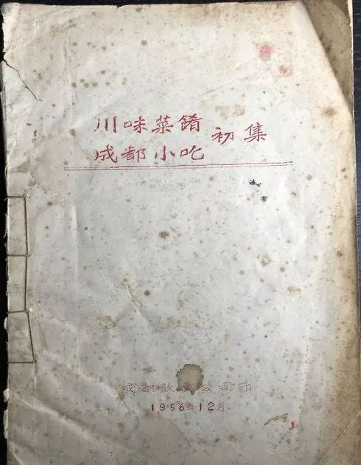 川味菜餚 初集
成都小吃
成都 公司
1956年12月